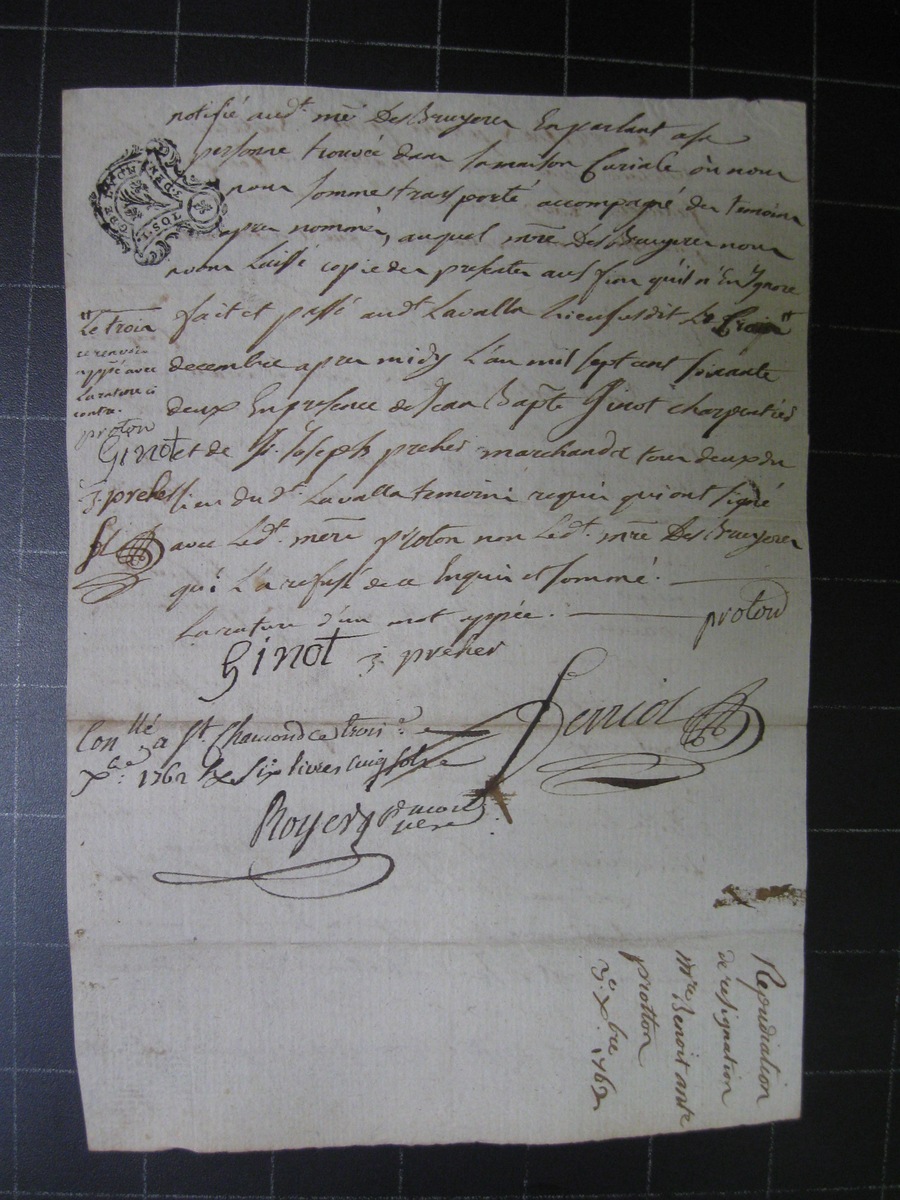 notifié aud.t mre DesBruyeres En parlant a sa
personne trouvée dans sa maison Curiale où nous
nous sommes transporté accompagné des temoins
apres nommés, auquel mre DesBruyeres nous
avons laissé copie des presentes aux fins qu'il n'En Ignore
fait et passé aud.t Lavalla lieu susdit Le
decembre apres midy L'an mil sept cent soixante
deux En presence de Jean Bapte Ginot charpentier
et de Sr. Joseph preher marchand tous deux du
lieu dud.t Lavalla temoins requis qui ont signé
avec Led.t mre proton non Led.t mre DesBruyeres
qui L'a refusé de ce Enquis et sommé.
La rature d'un mot appée. proton
Ginot J. preher
" Le trois
ce renvoi
appée avec
La rature ci
contre.
proton
Ginot
J. preher
Conllé a St. Chamond ce trois e
Xbre 1762 Six livres cinq sols
Royer
Repudiation
de resignation
mre Benoit ante
protton
3e. Xbre 1762